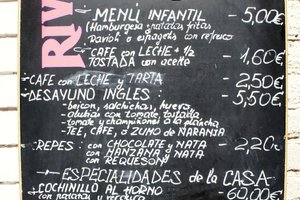 RIV
- MENÚ INFANTIL - 5,00€
(Hamburguesa y patatas fritas
Ravioli o espagetis con refresco
- CAFE con LECHE + 1/2
TOSTADA con aceite - 1,60€
- CAFE con LECHE y TARTA - 2,50€
- DESAYUNO INGLES: - 5,50€
- beicon, salchichas, huevo,
- alubias con tomate, tostada
- tomate y champiñones a la plancha
- TEE, CAFE, ó ZUMO de NARANJA
- CREPES: - con CHOCOLATE y NATA - 2,20€
- con MANZANA y NATA
- con REQUESON
- ESPECIALIDADES de la CASA
- COCHINILLO AL HORNO - 60,00€
con patatas y